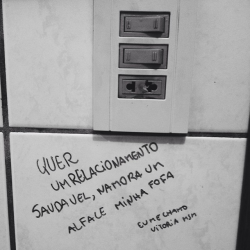 QUER
UM RELACIONAMENTO
SAUDAVEL, NAMORA UM
ALFACE MINHA FOFA
EU ME CHAMO
VITORIA